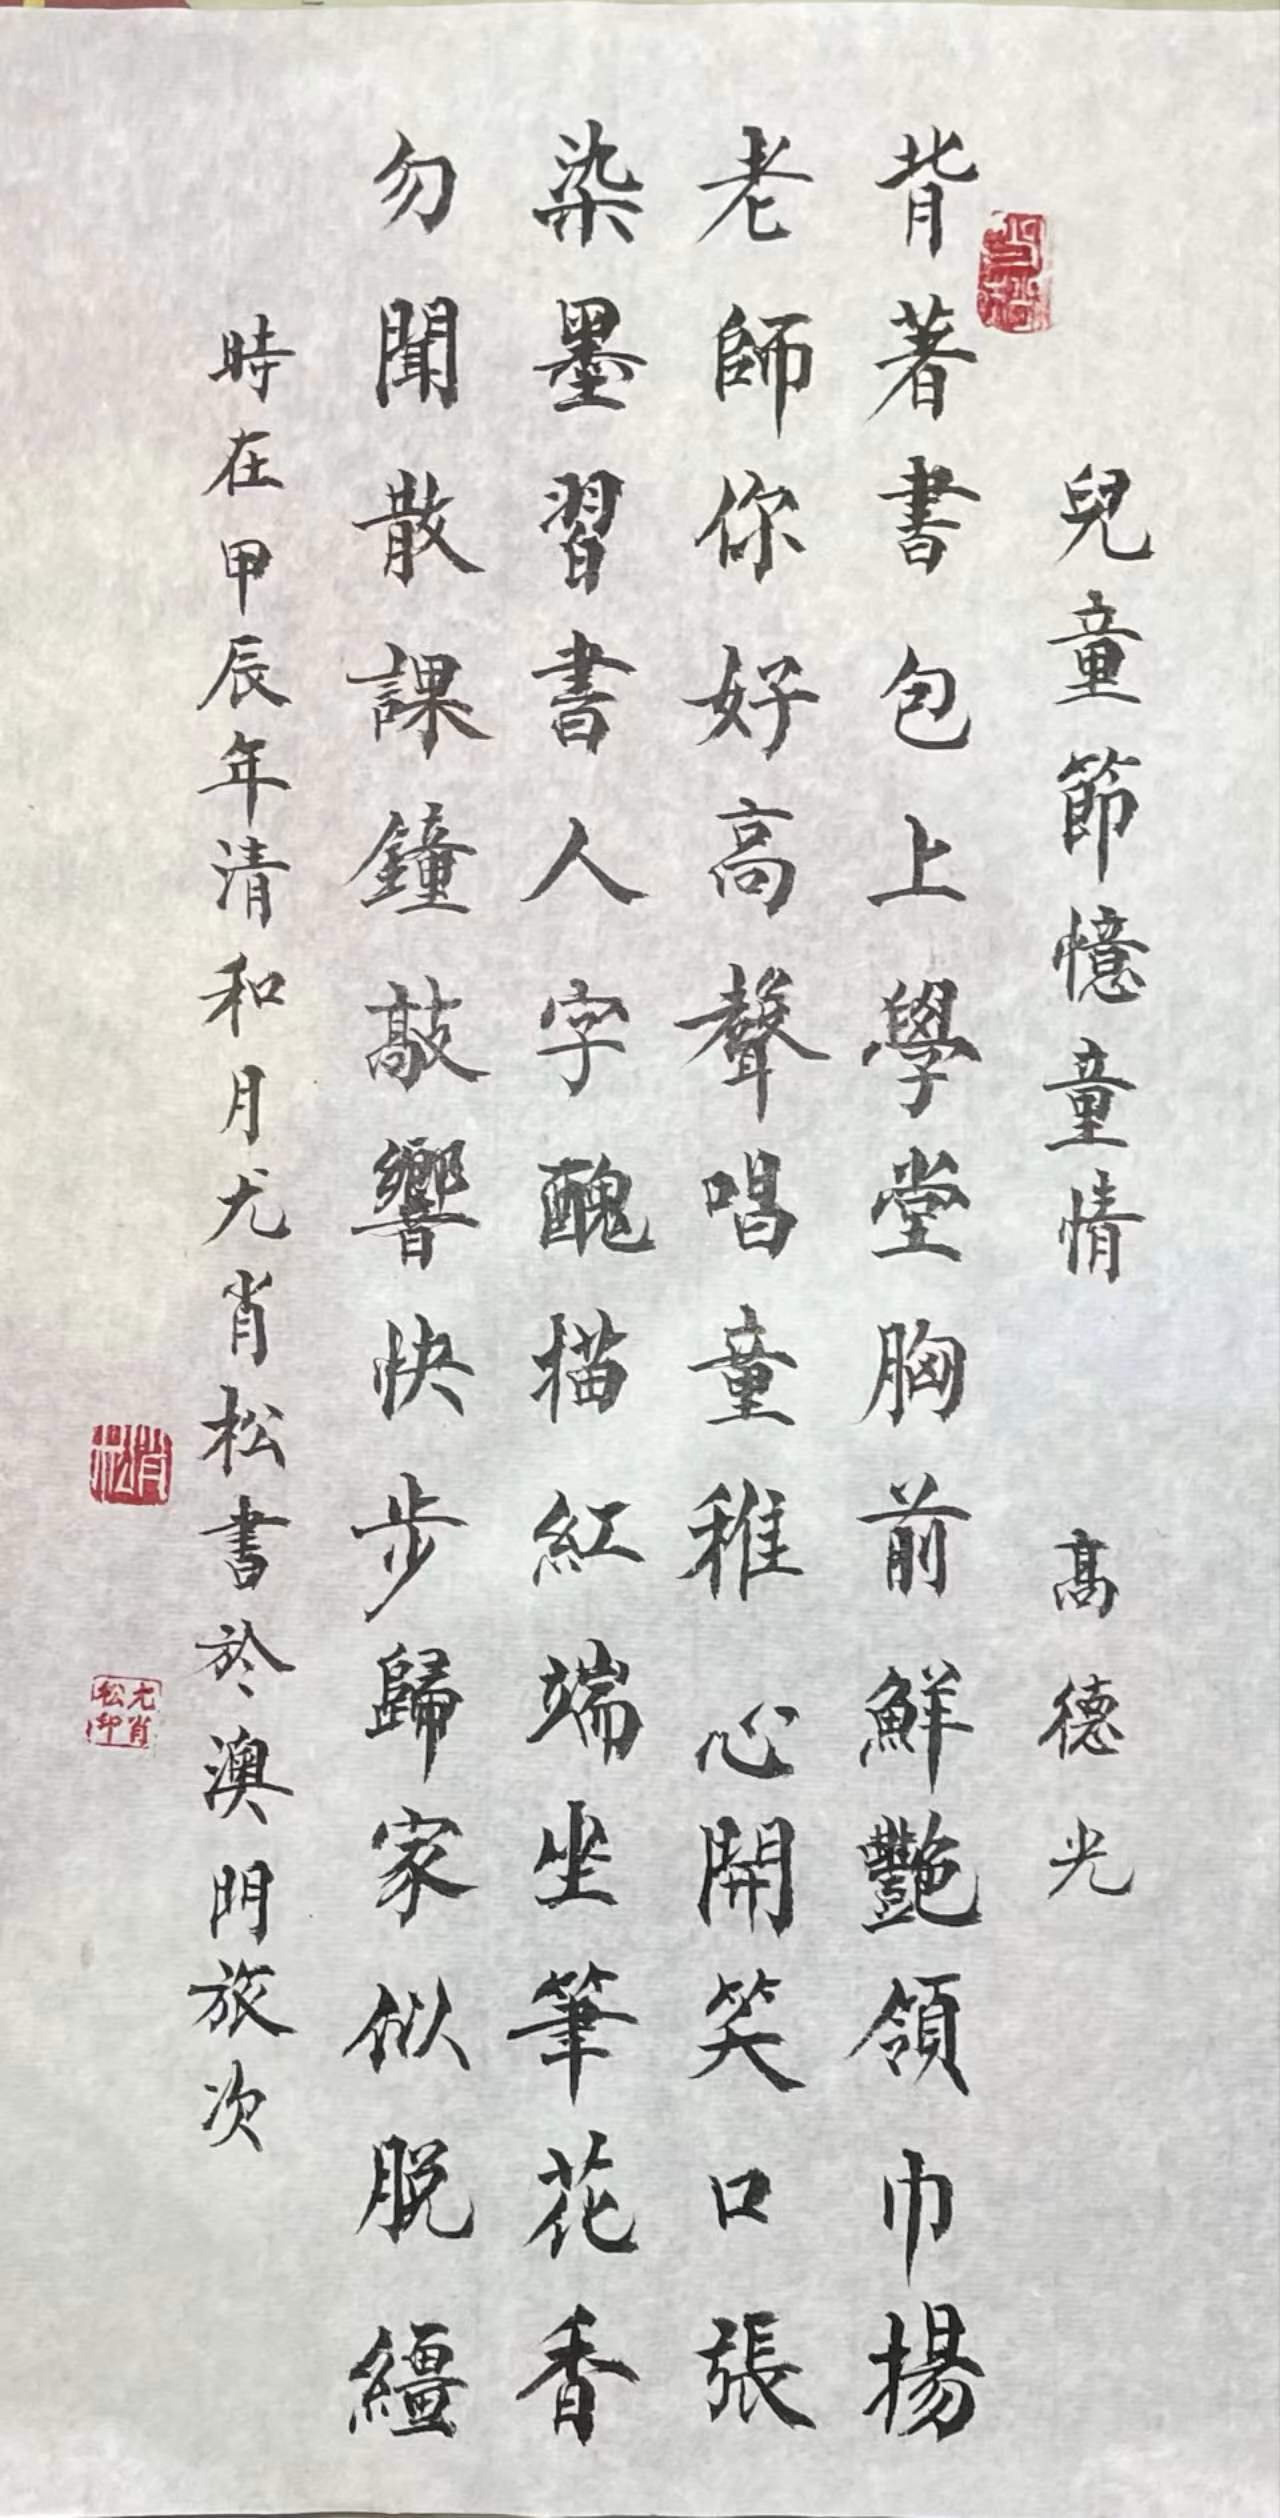 兒童節憶童情 高德光
背著書包上學堂胸前鮮艷領巾揚
老師你好高聲唱童稚心開笑口張
染墨習書人字醜描紅端坐筆花香
勿聞散課鐘敲響快步歸家似脫繮
時在甲辰年清和月尤肖松書於澳門旅次
肖松
尤肖松印